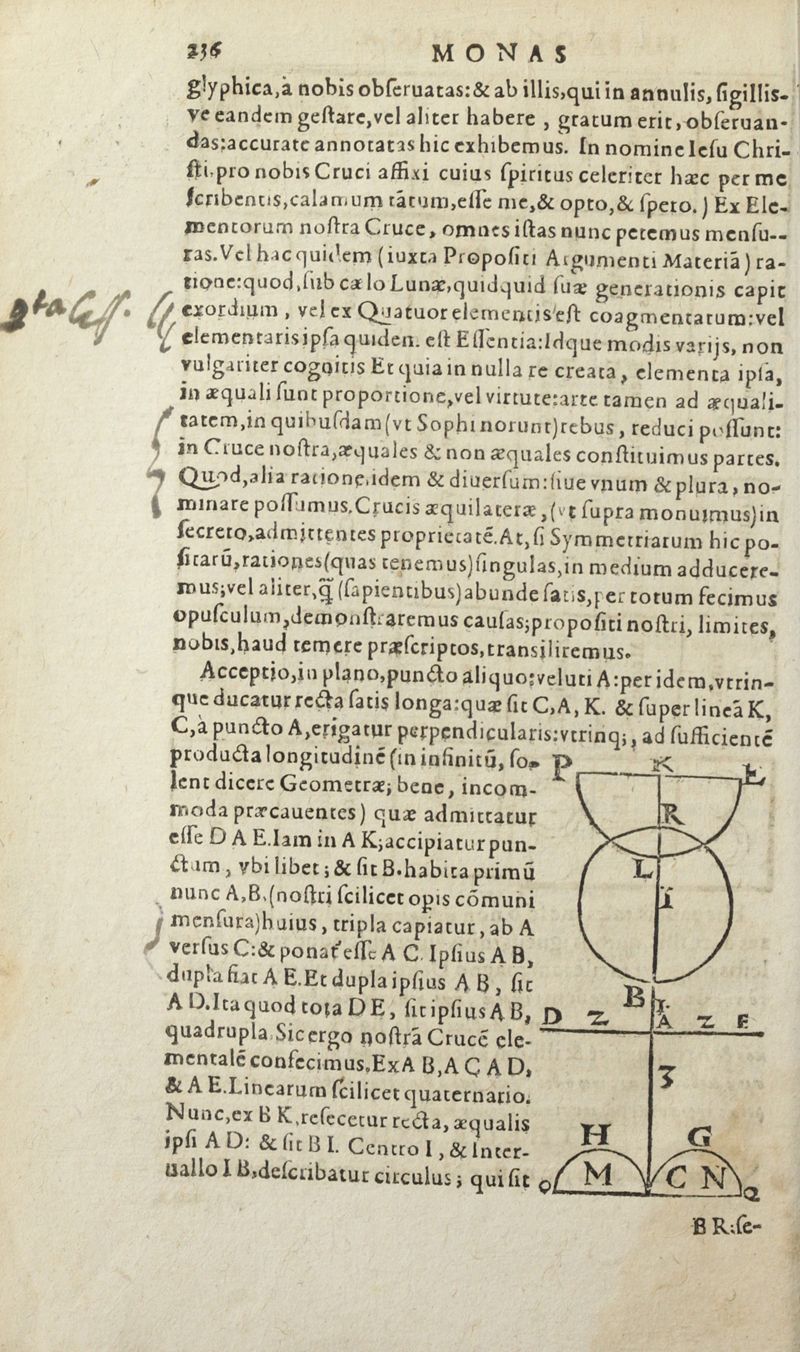 236 MONAS
glyphica,à nobis obſeruatas:& ab illis,qui in annulis, ſigillis-
ve eandem geſtare,vel aliter habere , gratum erit, obſeruan-
das:accurate annotatas hic exhibemus. In nomine Ieſu Chri-
ſti.pro nobis Cruci affixi cuius ſpiritus celeriter hæc per me
ſcribentis,calamum tãtum,eſſe me,& opto,& ſpero. ) Ex Ele-
mentorum noſtra Cruce, omnes iſtas nunc petemus menſu--
ras. Vel hac quidem (iuxta Propoſiti Argumenti Materiã) ra-
tione:quod,ſub cælo Lunæ,quidquid ſuæ generationis capit
exordium , vel ex Quatuor elementis eſt coagmentatum:vel
elementaris ipſa quidem. eſt Eſſentia:Idque modis varijs, non
vulgariter cognitis Et quia in nulla re creata, elementa ipſa,
in æquali ſunt proportione,vel virtute:arte tamen ad æquali-
tatem,in quibuſdam(vt Sophi norunt)rebus, reduci poſſunt:
in Cruce noſtra,æquales & non æquales conſtituimus partes.
Quod,alia ratione,idem & diuerſum:ſiue vnum & plura, no-
minare poſſumus.Crucis æquilateræ,(vt ſupra monuimus)in
ſecreto,admittentes proprietatẽ.At,ſi Symmetriarum hic po-
ſitarũ,rationes(quas tenemus)ſingulas,in medium adducere-
mus;vel aliter,q̃ (ſapientibus)abunde ſatis,per totum fecimus
opuſculum,demonſtraremus cauſas;propoſiti noſtri, limites,
nobis,haud temere præſcriptos,tranſiliremus.
Acceptio,in plano,puncto aliquo:veluti A:per idem,vtrin-
que ducatur recta ſatis longa:quæ ſit C,A, K. & ſuper lineã K,
C,à puncto A,erigatur perpendicularis:vtrinq;, ad ſufficientẽ
producta longitudinẽ (in infinitũ, ſo-
lent dicere Geometræ; bene, incom-
moda præcauentes) quæ admittatur
eſſe D A E.Iam in A K;accipiatur pun-
ctum , vbi libet ; & ſit B.habita primũ
nunc A,B,(noſtri ſcilicet opis cõmuni
menſura)huius, tripla capiatur, ab A
verſus C:& ponat' eſſe A C. Ipſius A B,
dupla fiat A E.Et dupla ipſius A B, ſit
A D.Ita quod tota D E, ſit ipſius A B,
quadrupla. Sic ergo noſtrã Crucẽ ele-
mentalẽ confecimus.Ex A B,A C A D,
& A E.Linearum ſcilicet quaternario.
Nunc,ex B K,reſecetur recta, æqualis
ipſi A D: & ſit B I. Centro I , & Inter-
uallo I B,deſcribatur circulus ; qui ſit
P K L
R
L
I
B I.
D Z A Z E
3
H G
Q M C N Q
B R:ſe-